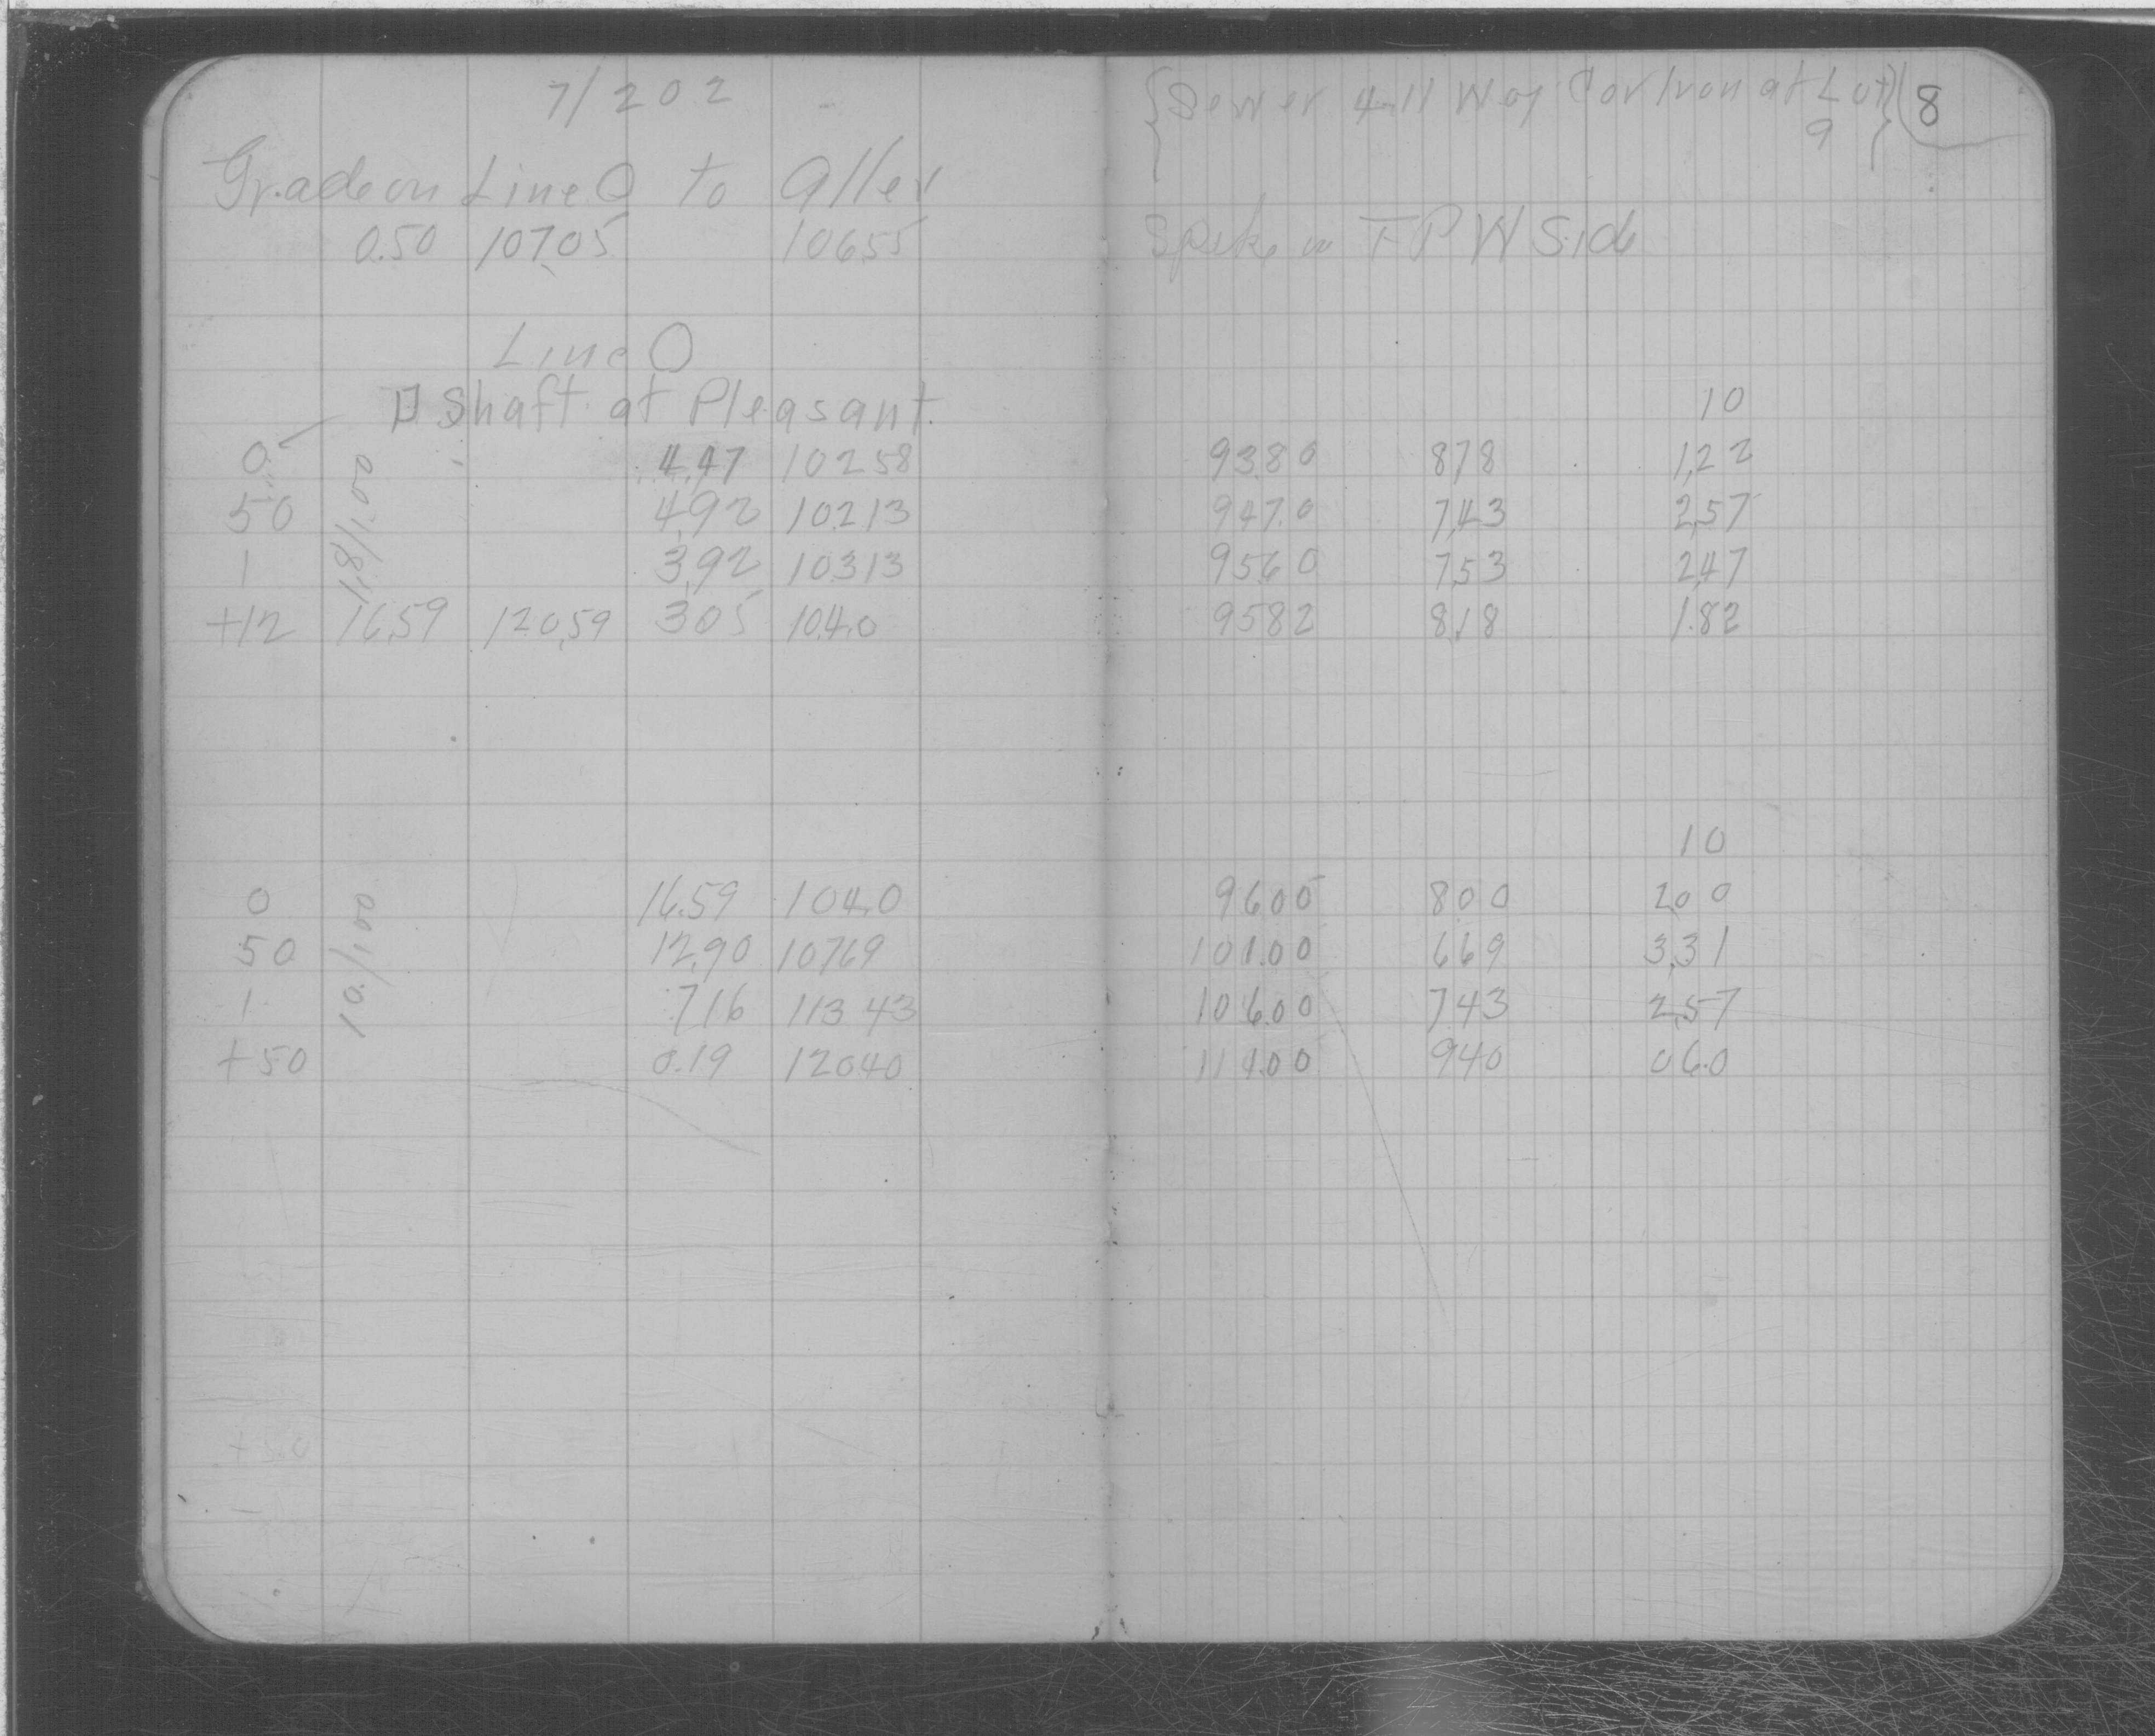 7/202
Grade on Line O to Alley
0.50 107.05 106.55
Line O
Shaft at Pleasant
0 4.47 102 58
50 4.92 102.13
1 3.92 103.13
+12 16.59 120.59 3 05 104.0
1.8/1.00
0 16.59 104.0
50 12.90 107 69
1 7 16 113 43
+50 0.19 120 40
10./100
{Sewer 4-11 Way Cor Iron at Lot 9} 8
Spike in T P W Side
10
93.80 8 78 1.22
94 7.0 7.43 2.57
95 60 7.53 2.47
95 82 8.18 1.82
10
96 00 8 00 2.0 0
101.00 6 69 3.31
106.00 7 43 2.57
111.00 9 40 0 6.0